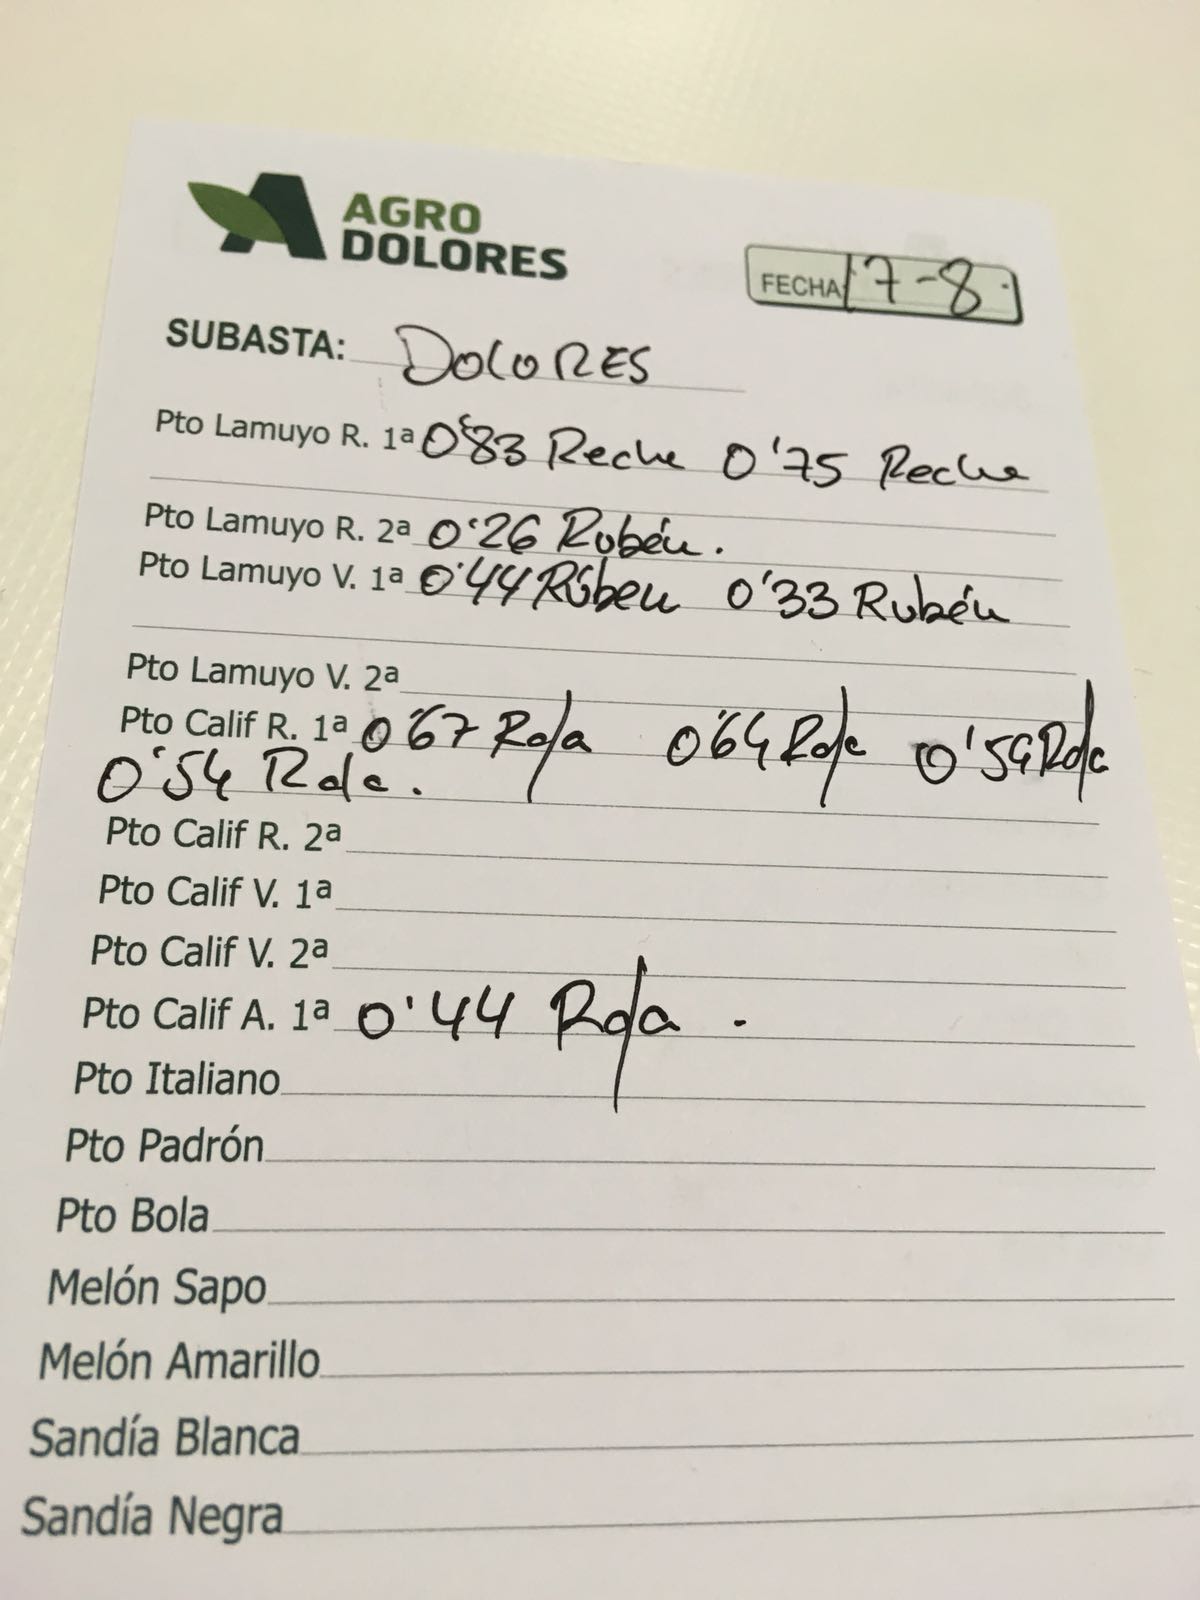 AGRO
DOLORES
FECHA 17-8
SUBASTA: DOLORES
Pto Lamuyo R. 1ª 0'83 Reche 0'75 Reche
Pto Lamuyo R. 2ª 0'26 Rubén.
Pto Lamuyo V. 1ª 0'44 Rúben 0'33 Rubén
Pto Lamuyo V. 2ª
Pto Calif R. 1ª 0'67 Roja 0'64 0'59
0'54
Pto Calif R. 2ª
Pto Calif V. 1ª
Pto Calif V. 2ª
Pto Calif A. 1ª 0'44 .
Pto Italiano
Pto Padrón
Pto Bola
Melón Sapo
Melón Amarillo
Sandía Blanca
Sandía Negra